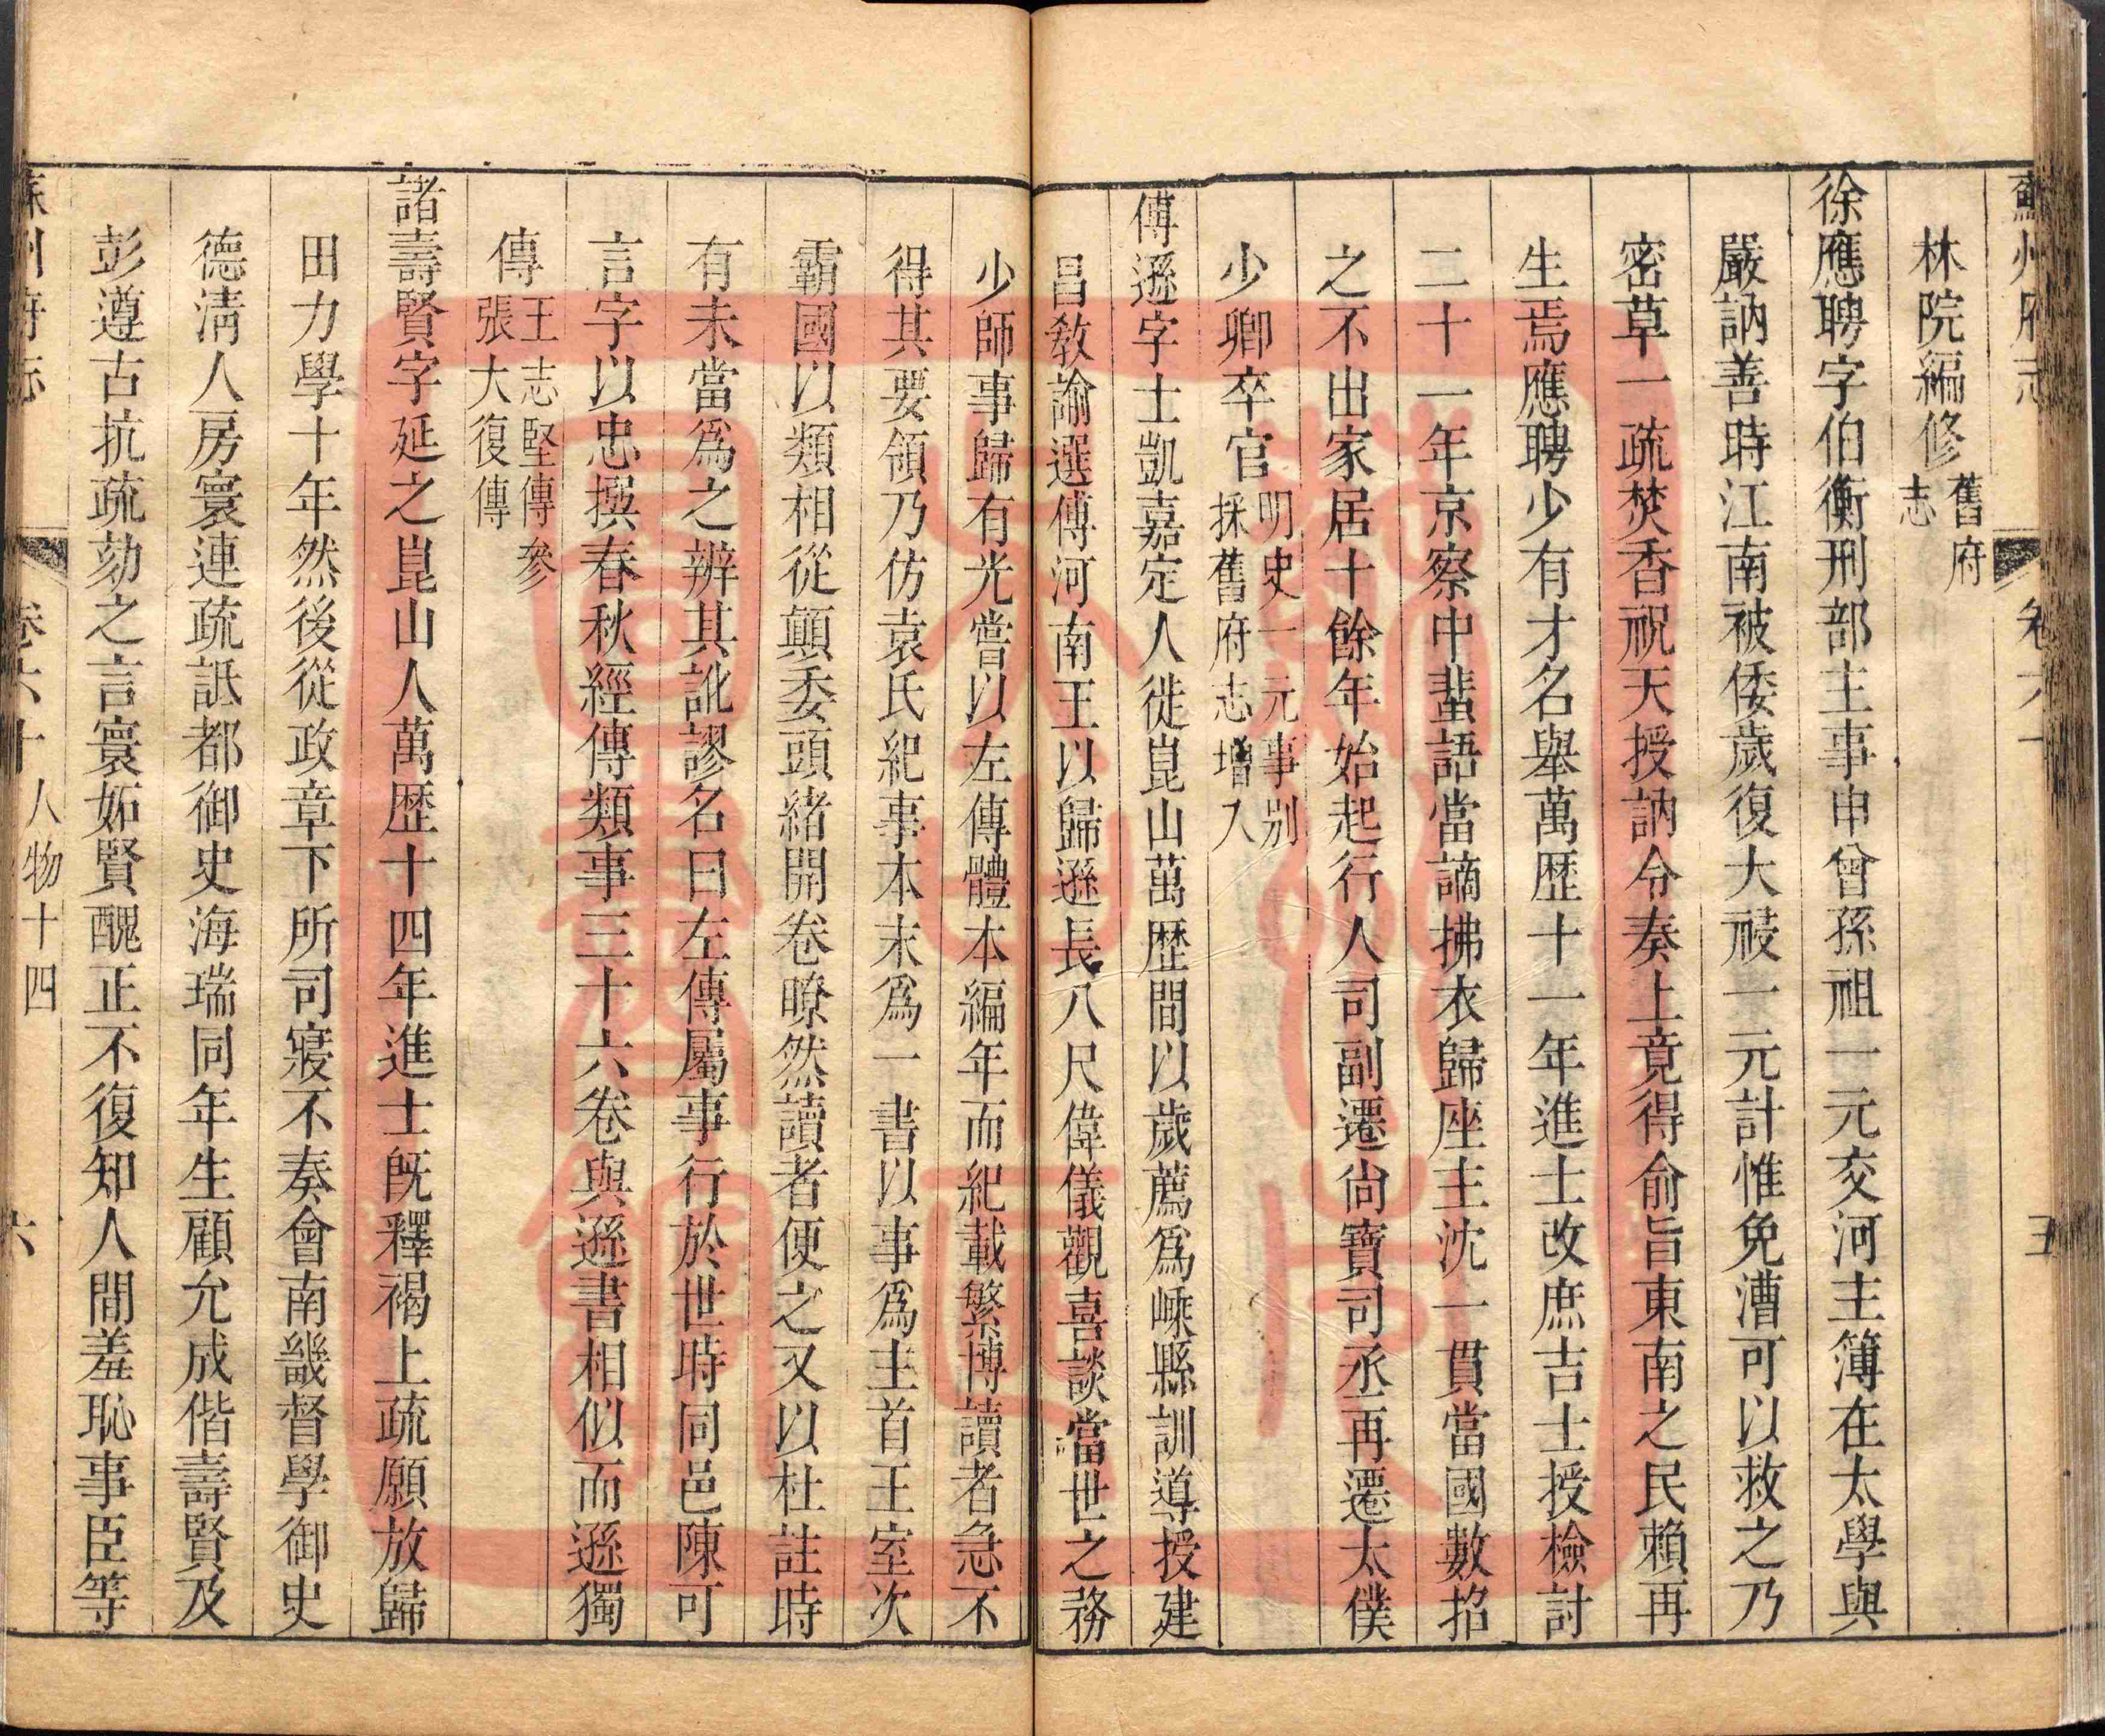 蘇州府志 卷六十 五
林院編修舊府志
徐應聘字伯衡刑部主事申曾孫祖一元交河主簿在太學與
嚴訥善時江南被倭歲復大祲一元計惟免漕可以救之乃
密草一疏焚香祝天授訥令奏上竟得俞旨東南之民賴再
生焉應聘少有才名舉萬歷十一年進士改庶吉士授檢討
二十一年京察中蜚語當謫拂衣歸座主沈一貫當國數招
之不出家居十餘年始起行人司副遷尚寶司丞再遷太僕
少卿卒官明史一元事别採舊府志增入
傅遜字士凱嘉定人徙崑山萬歷間以歲薦爲嵊縣訓導授建
昌教諭選傅河南王以歸遜長八尺偉儀觀喜談當世之務
少師事歸有光嘗以左傳體本編年而紀載繁博讀者急不
得其要領乃仿袁氏紀事本末爲一書以事爲主首王室次
霸國以類相從顛委頭緒開卷瞭然讀者便之又以杜註時
有未當爲之辨其訛謬名曰左傳屬事行於世時同邑陳可
言字以忠撰春秋經傳類事三十六卷與遜書相似而遜獨
傳王志堅傳參張大復傳
諸壽賢字延之崑山人萬歷十四年進士旣釋褐上疏願放歸
田力學十年然後從政章下所司寢不奏會南畿督學御史
德淸人房寰連疏詆都御史海瑞同年生顧允成偕壽賢及
彭遵古抗疏劾之言寰妬賢醜正不復知人間羞恥事臣等
蘇州府志 卷六十 人物十四 六